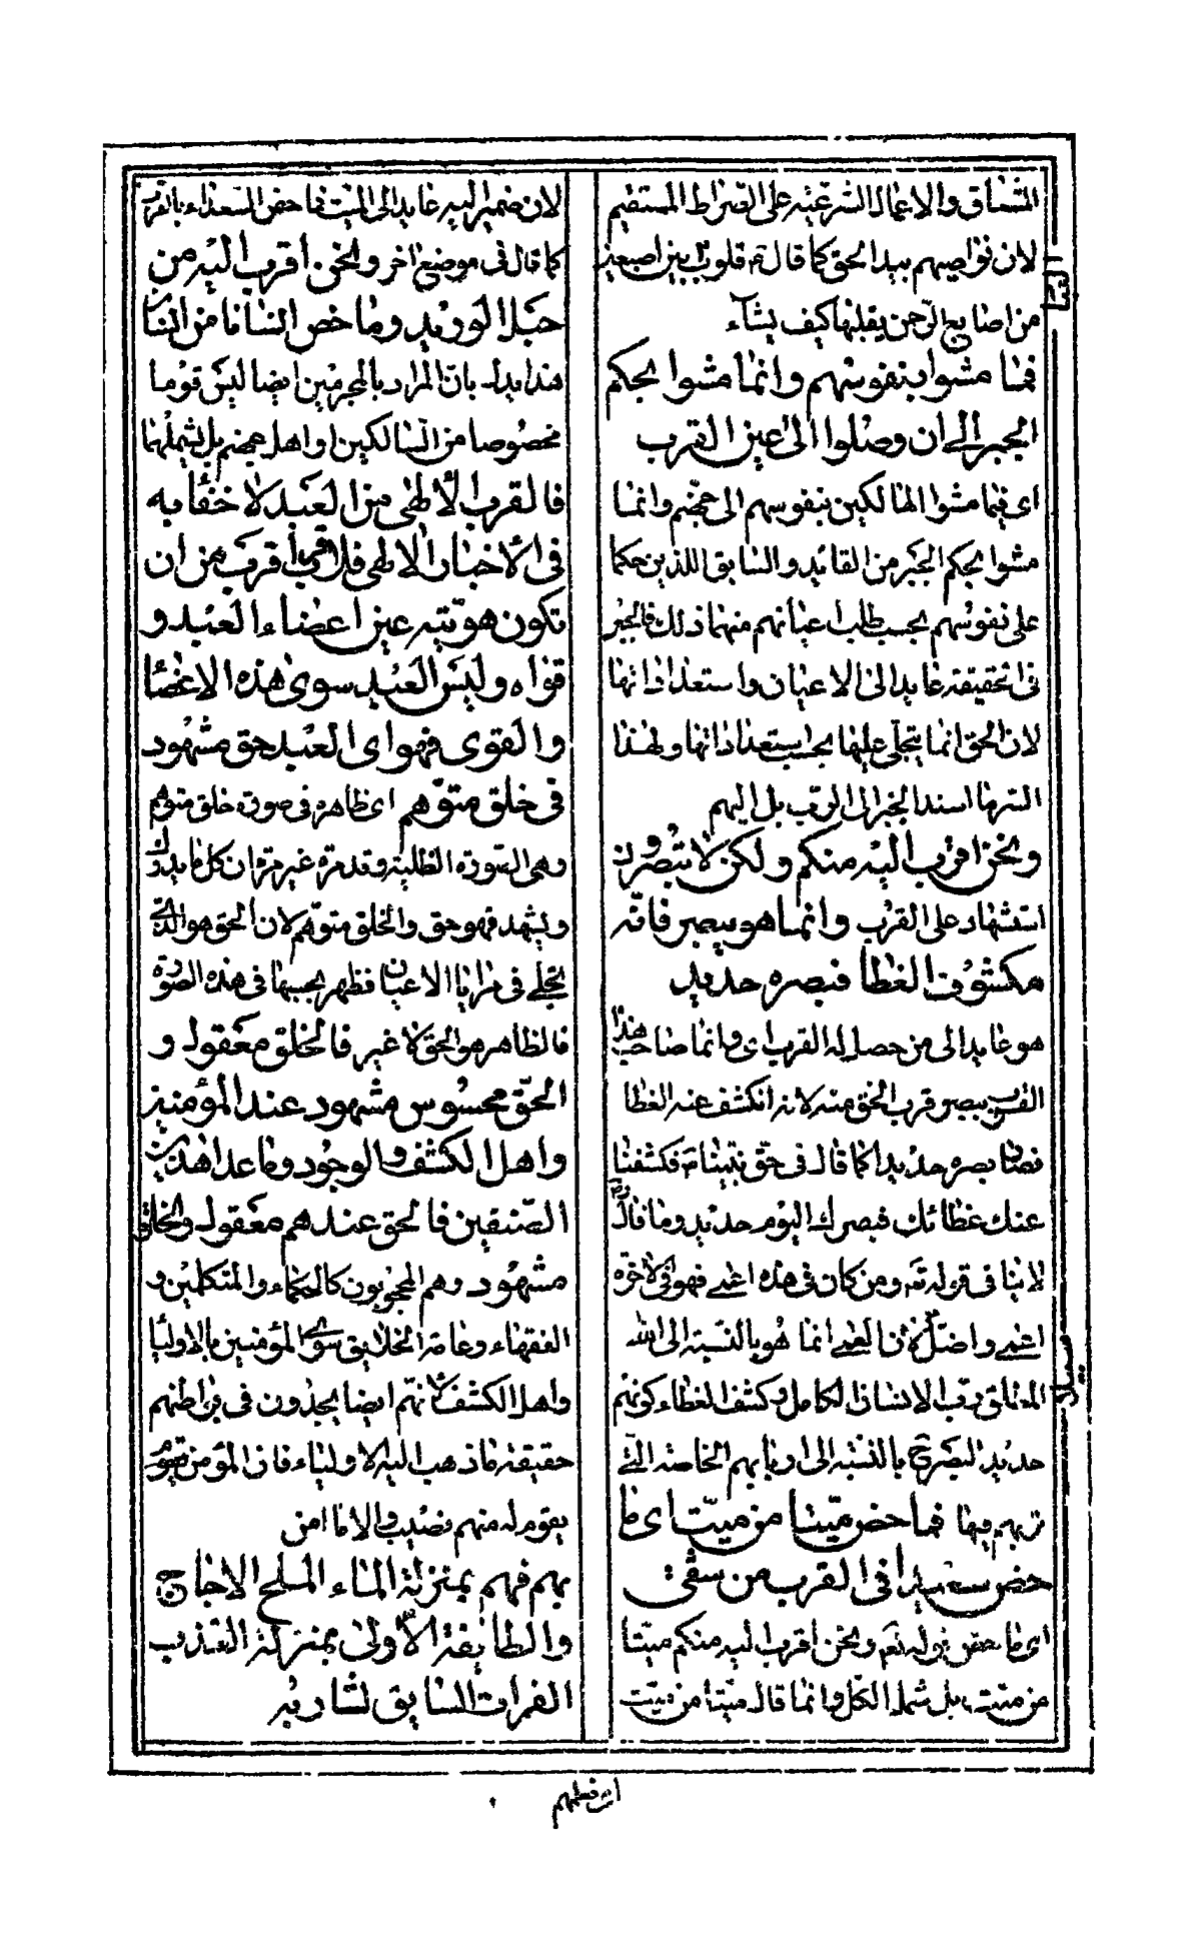 المشاق والاعمال الشرعية على الصراط المستقيم
لان نواصيهم بيد الحق كما قال قلوب بين اصبعين
من اصابع الرحمن يقلبها كيف يشاء
فما مشوا بنفوسهم وانما مشوا بحكم
الجبر الى ان وصلوا الى عين القرب
اى فما مشوا الهالكين بنفوسهم الى جهنم وانما
مشوا بحكم الجبر من القائد والسايق اللذين حكما
على نفوسهم بحسب طلب اعيانهم منهما ذلك فالجبر
فى الحقيقة عايد الى الاعيان واستعداداتها
لان الحق انما يتجلى عليها بحسب استعداداتها ولهذا
السرما اسند الجبر الى الرب بل اليهم
ونحن اقرب اليه منكم ولكن لا تبصرون
استشهاد على القرب وانما هو يبصر فانه
مكشوف الغطا فبصره حديد
هو عايد الى من حصل له القرب اى وانما صاحب هذا
القرب يبصر قرب الحق منه لانه انكشف عنه الغطا
فصار بصره حديدا كما قال فى حق نبينا فكشفنا
عنك غطائك فبصرك اليوم حديد وما قال
لا ينافى قوله تعه ومن كان فى هذه اعمى فهو فى الاخرة
اعمى واضل لان العمى انما هو بالنسبة الى الله
المطلق رب الانسان الكامل وكشف الغطاء كونهم
حديد البصر بالنسبة الى اربابهم الخاصة التى
تربهم فيها فما خص ميتا من ميت اى ما
خص سعيدا فى القرب من شقى
اى ما خص بقوله تعه ونحن اقرب اليه منكم ميتا
من ميت بل شمل الكل وانما قال ميتا من ميت
لان ضمير اليه عايد الى الميت فما خص السعداء بالقرب
كما قال فى موضع اخر ونحن اقرب اليه من
حبل الوريد وما خص انسانا من انسان
هذا يدل بان المراد بالمجرمين ايضا ليس قوما
مخصوصا من السالكين او اهل جهنم بل يشملهما
فالقرب الالهى من العبد لا خفأ به
فى الاخبار الالهى فلا قرب اقرب من ان
تكون هويته عين اعضاء العبد و
قواه وليس العبد سوى هذه الاعضا
والقوى فهو اى العبد حق مشهود
فى خلق متوهم اى ظاهر فى صورة خلق متوهم
وهى الصورة الظلية وقد مر غير مرة ان كل ما يدرك
ويشهد فهو حق والخلق متوهم لان الحق هو الذى
يتجلى فى مرايا الاعيان فظهر بحسبها فى هذه الصورة
فالظاهر هو الحق لا غير فالخلق معقول و
الحق محسوس مشهود عند المؤمنين
واهل الكشف والوجود وما عدا هذين
الصنفين فالحق عندهم معقول والخلق
مشهود وهم المحجوبون كالحكماء والمتكلمين و
الفقهاء وعامة الخلايق سوى المؤمنين بالاوليا
واهل الكشف لانهم ايضا يجدون فى بواطنهم
حقيقة ما ذهب اليه الاولياء فان المؤمن
يقوم له منهم نصيب والا ما امن
بهم فهم بمنزلة الماء الملح الاجاج
والطايفة الاولى بمنزلة العذب
الفرات السايق لشاربه